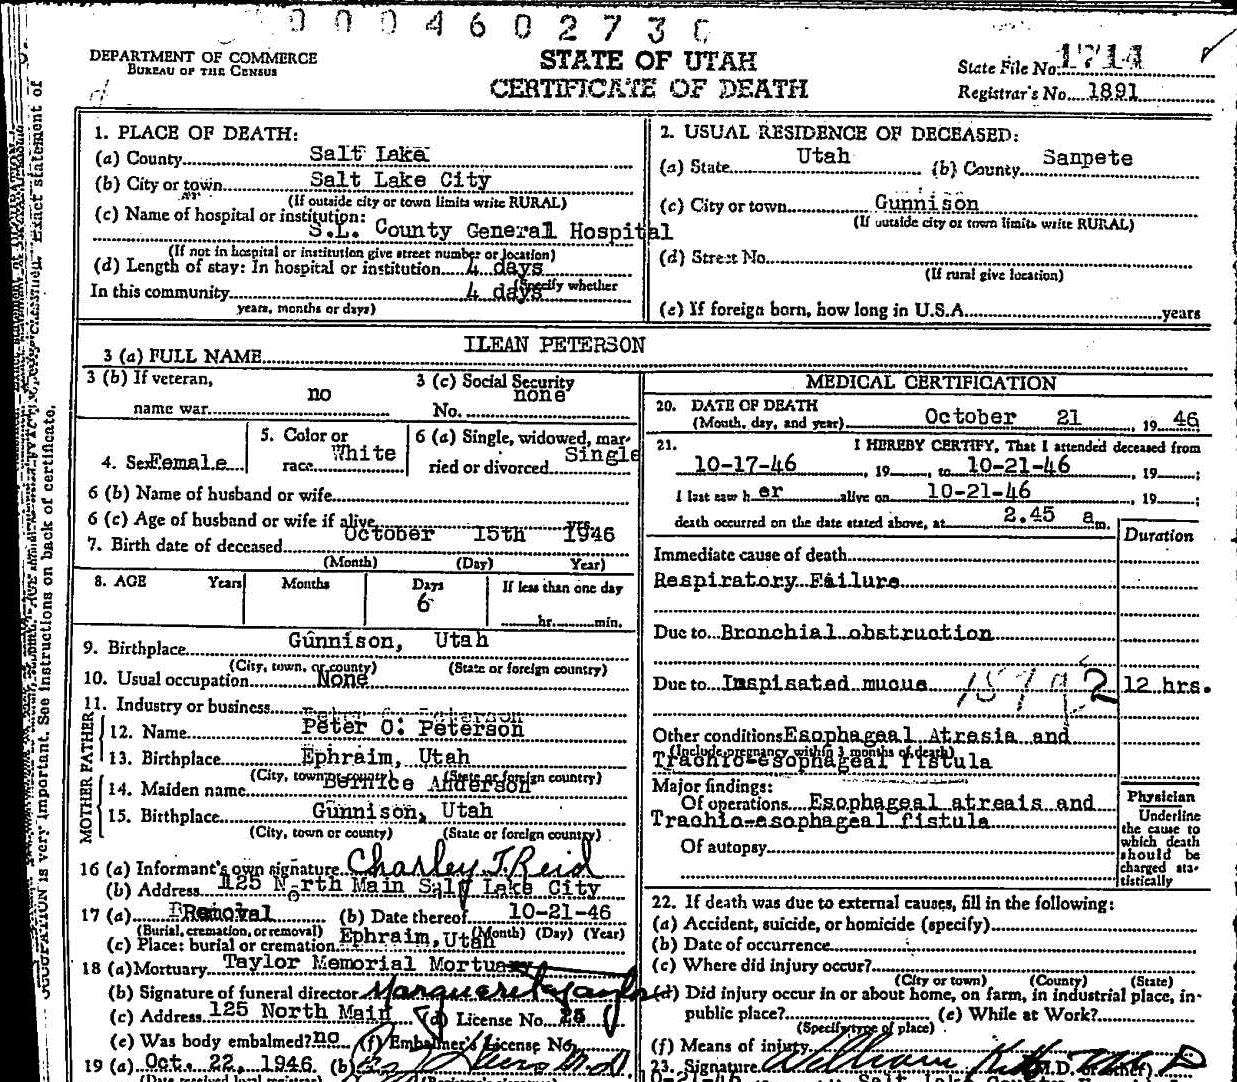 0004602730
DEPARTMENT OF COMMERCE
BUREAU OF THE CENSUS
STATE OF UTAH
CERTIFICATE OF DEATH
State File No. 1714
Registrar's No. 1891
1. PLACE OF DEATH:
(a) County Salt Lake
(b) City or town Salt Lake City
(If outside city or town limits write RURAL)
(c) Name of hospital or institution:
S.L. County General Hospital
(If not in hospital or institution give street number or location)
(d) Length of stay: In hospital or institution 4 days
(Specify whether
In this community 4 days
years, months or days)
2. USUAL RESIDENCE OF DECEASED:
(a) State Utah (b) County Sanpete
(c) City or town Gunnison
(If outside city or town limits write RURAL)
(d) Street No.
(If rural give location)
(e) If foreign born, how long in U.S.A. years
3 (a) FULL NAME ILEAN PETERSON
3 (b) If veteran, name war no
3 (c) Social Security No. none
4. Sex Female
5. Color or race White
6 (a) Single, widowed, married or divorced Single
6 (b) Name of husband or wife
6 (c) Age of husband or wife if alive yrs.
7. Birth date of deceased October 15th 1946
(Month) (Day) Year)
8. AGE Years Months Days If less than one day
6 hr. min.
9. Birthplace Gunnison, Utah
(City, town, or county) (State or foreign country)
10. Usual occupation None
11. Industry or business
FATHER
12. Name Peter O. Peterson
13. Birthplace Ephraim, Utah
(City, town or county) (State or foreign country)
MOTHER
14. Maiden name Bernice Anderson
15. Birthplace Gunnison, Utah
(City, town or county) (State or foreign country)
16 (a) Informant's own signature Charley T. Reid
(b) Address 125 North Main Salt Lake City
17 (a) Removal (b) Date thereof 10-21-46
(Burial, cremation, or removal) (Month) (Day) (Year)
(c) Place: burial or cremation Ephraim, Utah
18 (a) Mortuary Taylor Memorial Mortuary
(b) Signature of funeral director
(c) Address 125 North Main (d) License No. 25
(e) Was body embalmed? no (f) Embalmer's License No.
19 (a) Oct. 22, 1946 (b)
MEDICAL CERTIFICATION
20. DATE OF DEATH
(Month, day, and year) October 21, 19 46
21. I HEREBY CERTIFY, That I attended deceased from
10-17-46, 19 , to 10-21-46, 19 ;
I last saw h er alive on 10-21-46, 19 ;
death occurred on the date stated above, at 2.45 a m.
Duration
Immediate cause of death
Respiratory Failure
Due to Bronchial obstruction
Due to Inspisated mucus 12 hrs.
Other conditions Esophageal Atresia and
(Include pregnancy within 3 months of death)
Trachio-esophageal fistula
Major findings:
Of operations Esophageal atreais and
Trachio-esophageal fistula
Of autopsy
Physician
Underline
the cause to
which death
should be
charged sta-
tistically
22. If death was due to external causes, fill in the following:
(a) Accident, suicide, or homicide (specify)
(b) Date of occurrence
(c) Where did injury occur?
(City or town) (County) (State)
(d) Did injury occur in or about home, on farm, in industrial place, in-
public place? (e) While at Work?
(Specify type of place)
(f) Means of injury
23. Signature William
OCCUPATION is very important. See instructions on back of certificate.
Exact statement of